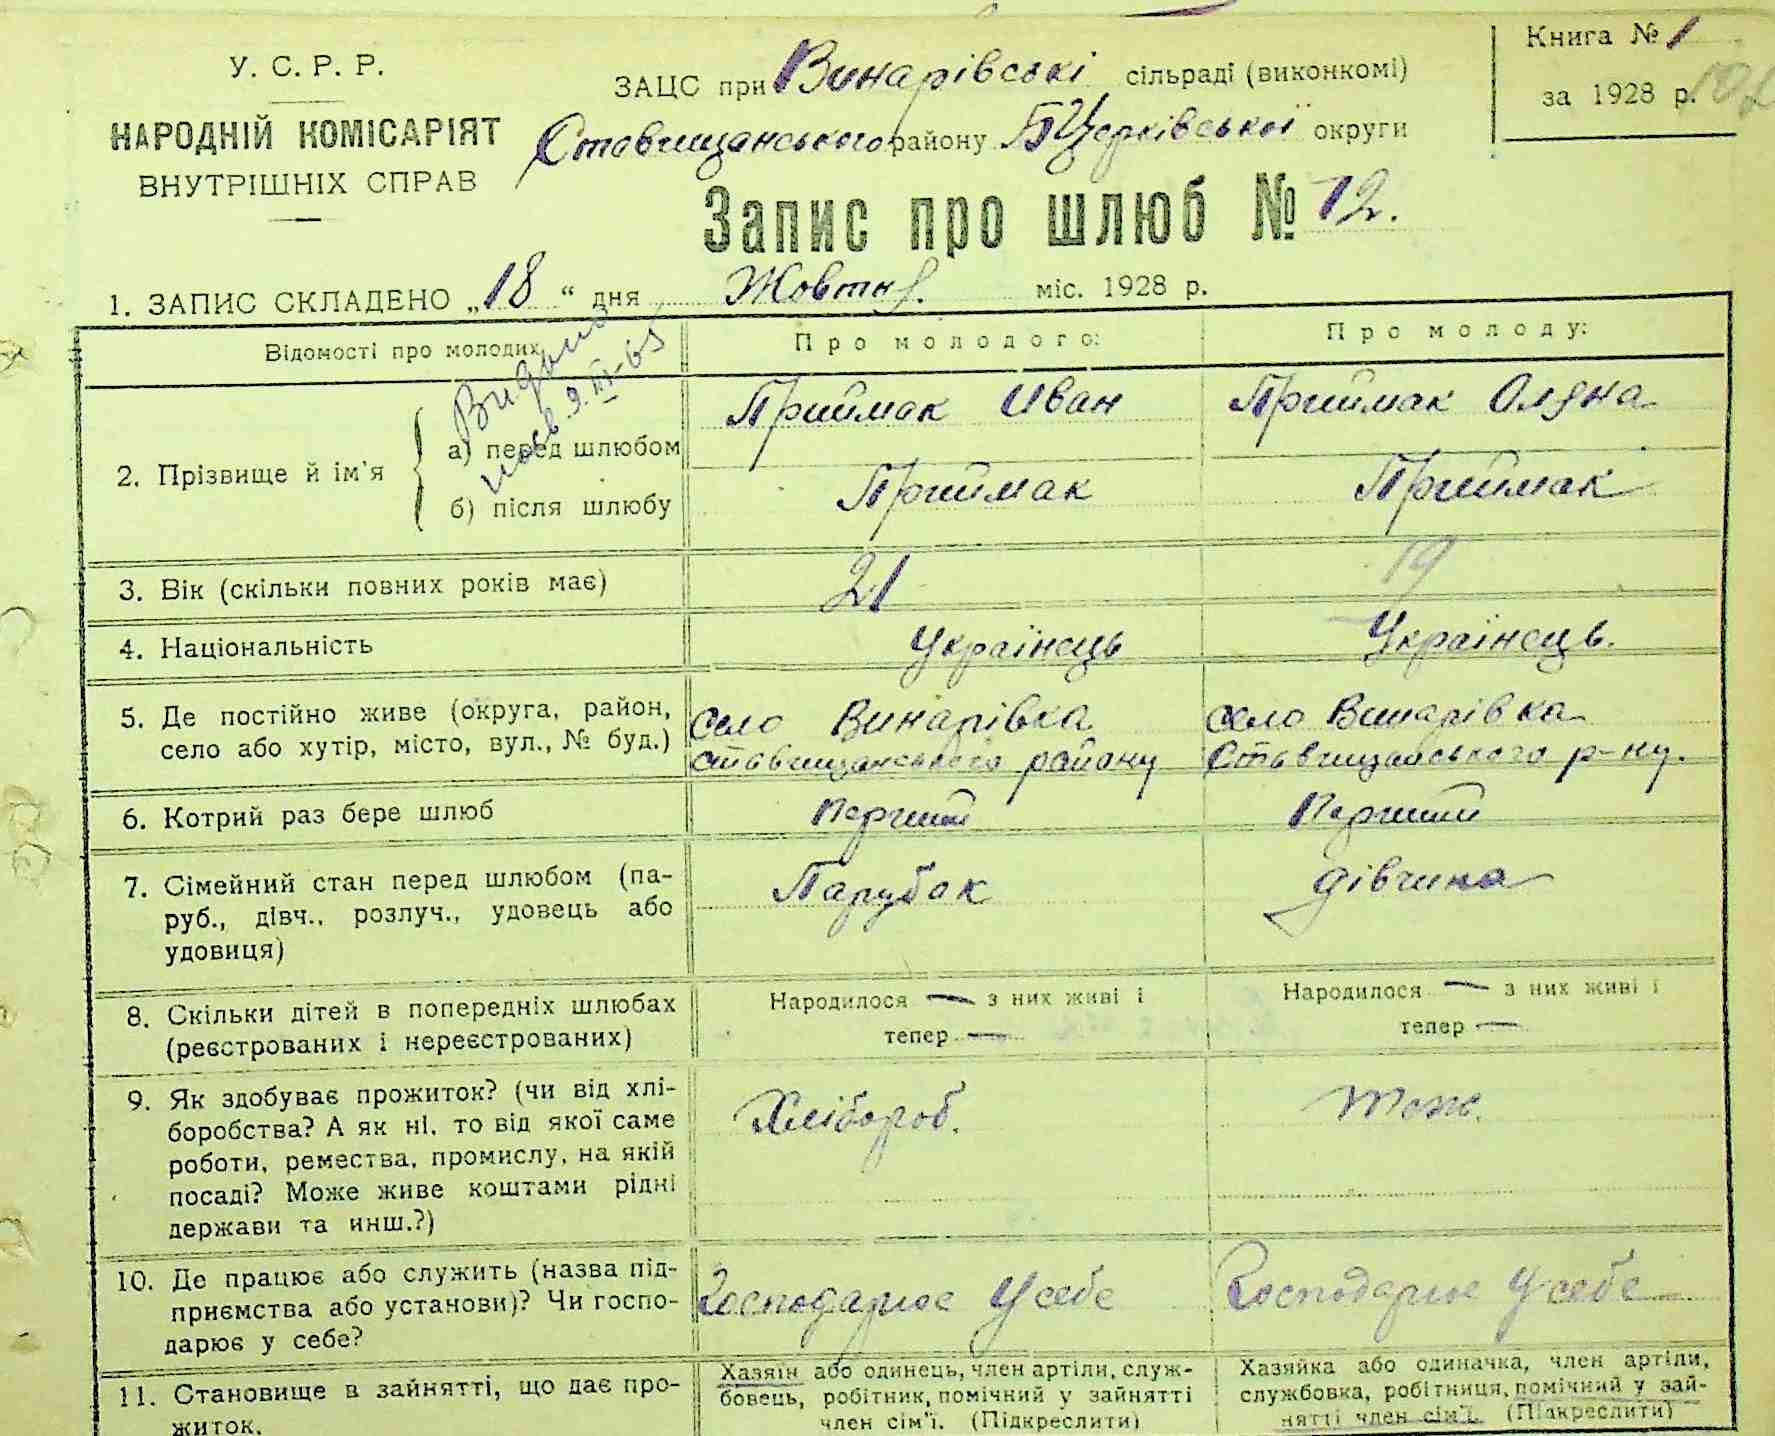 У. С. Р. Р.
НАРОДНІЙ КОМІСАРІЯТ
ВНУТРІШНІХ СПРАВ
ЗАЦС при Винарівські сільраді (виконкомі)
Ставищанського району Б Церківської округи
Книга № 1
за 1928 р.
Запис про шлюб № 12.
1. ЗАПИС СКЛАДЕНО „18“ дня Жовтня. міс. 1928 р.
Відомості про молодих
Про молодого:
Про молоду:
Видано
2. Прізвище й ім'я
а) перед шлюбом
Приймак Иван
Приймак Оляна
б) після шлюбу
Приймак
Приймак
3. Вік (скільки повних років має)
21
19
4. Національність
Українець
Українець.
5. Де постійно живе (округа, район,
село або хутір, місто, вул., № буд.)
село Винарівка
ставищанського району
село Винарівка
Ставищанського р-ну.
6. Котрий раз бере шлюб
Перший
Перший
7. Сімейний стан перед шлюбом (па-
руб., дівч., розлуч., удовець або
удовиця)
Парубак
дівчина
8. Скільки дітей в попередніх шлюбах
(реєстрованих і нереєстрованих)
Народилося — з них живі і
тепер —
Народилося — з них живі і
тепер —
9. Як здобуває прожиток? (чи від хлі-
боробства? А як ні, то від якої саме
роботи, ремества, промислу, на якій
посаді? Може живе коштами рідні
держави та инш.?)
Хлібороб.
Тож.
10. Де працює або служить (назва під-
приємства або установи)? Чи госпо-
дарює у себе?
Господарює У себе
Господарює У себе
11. Становище в зайнятті, що дає про-
житок.
Хазяїн або одинець, член артіли, служ-
бовець, робітник, помічний у зайнятті
член сім'ї. (Підкреслити)
Хазяйка або одиначка, член артіли,
службовка, робітниця, помічний у зай-
нятті член сім'ї. (Підкреслити)